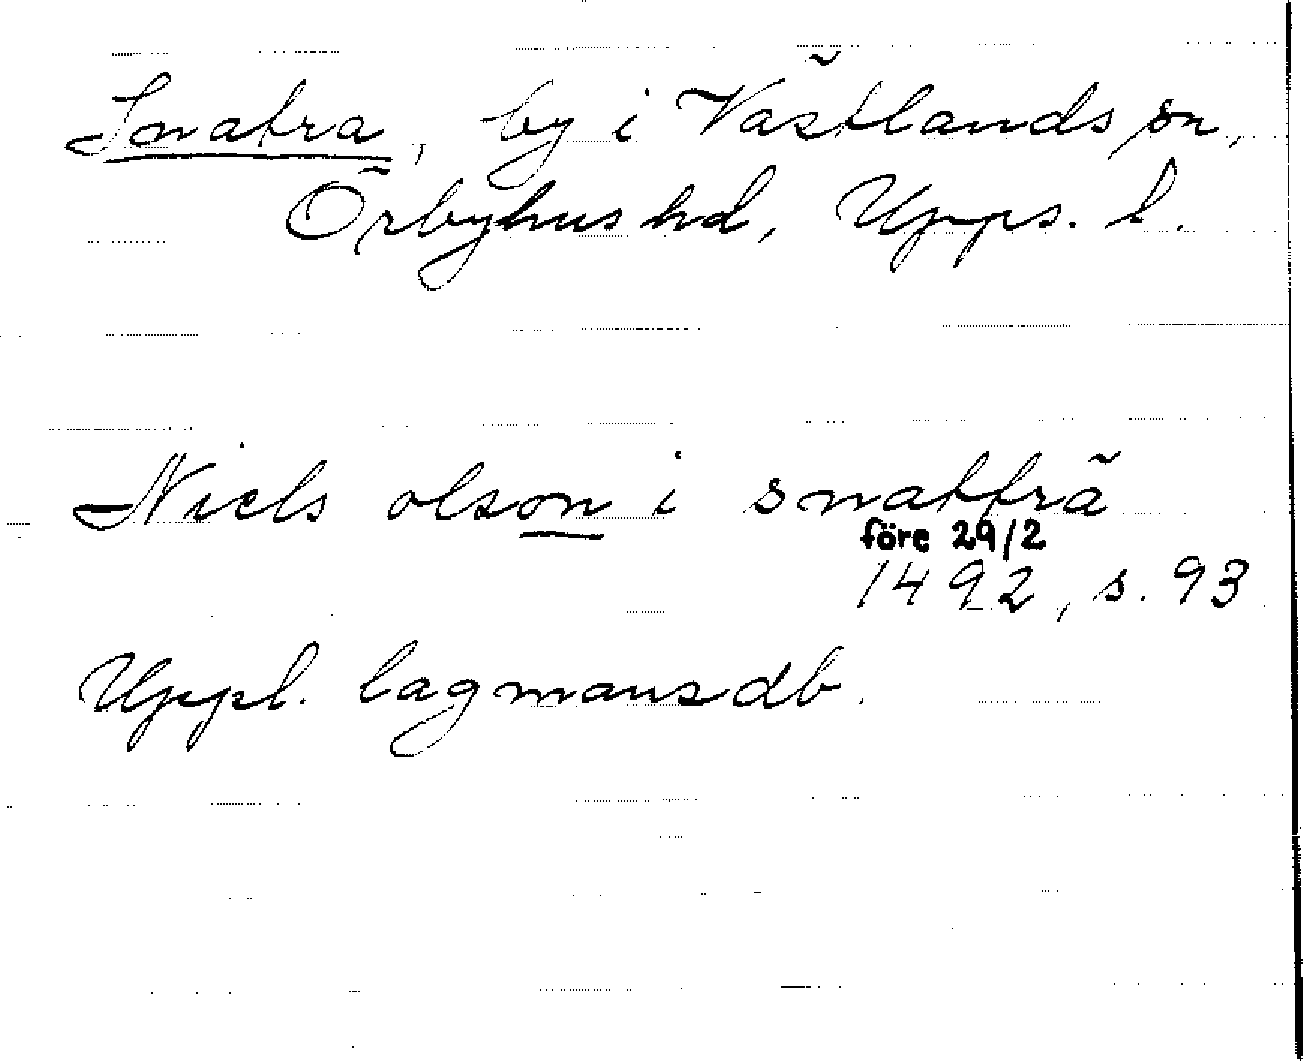 Snatra, by i Västlands sn,
Örbyhus hd, Upps. l.
Niels olson i snatträ
före 29/2
1492, s. 93
Uppl. lagmansdb.